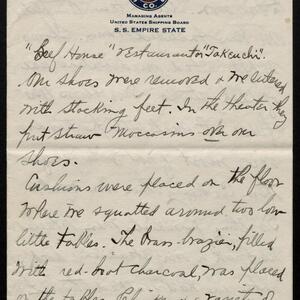 CO.
MANAGING AGENTS
UNITED STATES SHIPPING BOARD
S.S. EMPIRE STATE
"Beef House" restaurant or "Takeuchi".
Our shoes were removed & we entered
with stocking feet. In the theater they
put straw moccasins over our
shoes.
Cushions were placed on the floor
where we squatted around two low
little tables. The brass brazier, filled
with red-hot charcoal, was placed